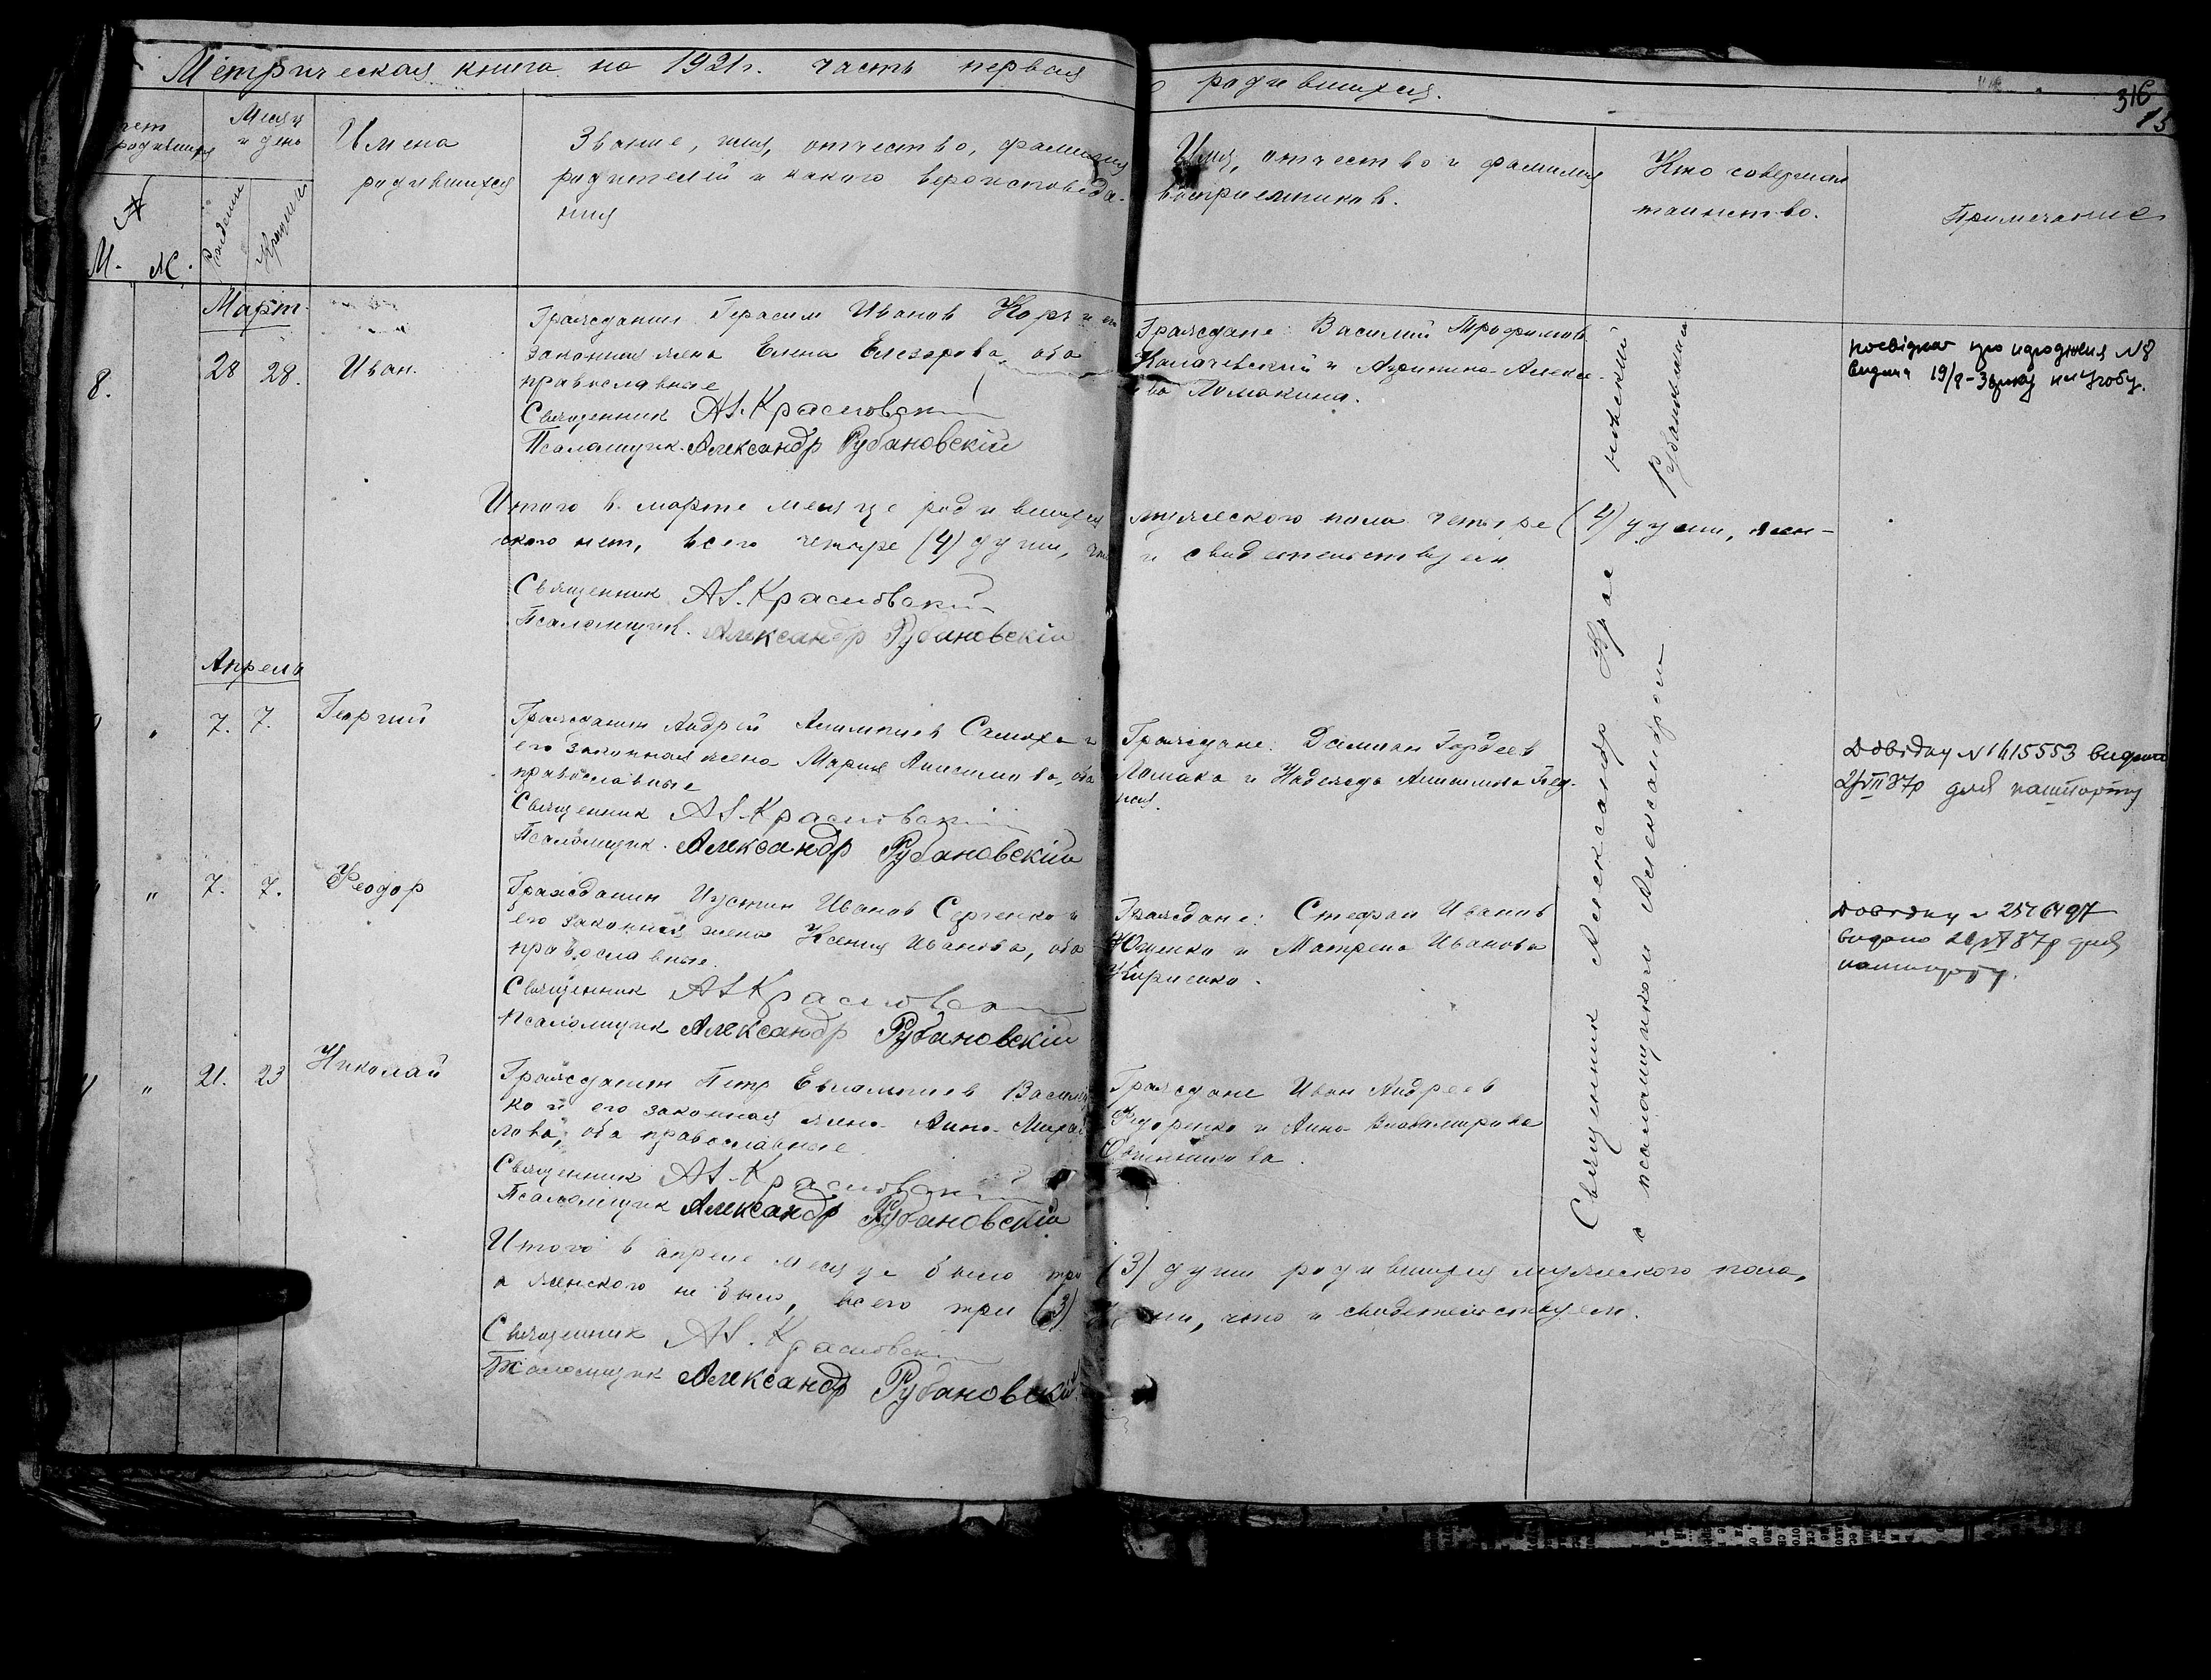 Метрическая книга на 1921 г. часть первая
о родившихся.
316
15
Счет родившихся
Месяц и день
Имена
родившихся
Звание, имя, отчество, фамилия
родителей и какого вероисповеда-
ния
Имя, отчество и фамилия
восприемников.
Кто совершал
таинство.
Примечание
М. Ж.
Рождения
Крещения
Март
8. " 28 28. Иван.
Гражданин Герасим Иванов Корж и его
законная жена Елена Елезарова, оба
православные
Священник Ал. Красновский
Псаломщик Александр Рубановскій
Граждане: Василий Трофимов
Калачевский и Акилина Алексе-
ва Ломакина.
посвідка про народження №8
видана 19/
Итого в марте месяце родившихся мужеского пола четыре (4) души, жен-
ского нет, всего четыре (4) души, что и свидетельствуем
Священник Ал. Красновский
Псаломщик Александр Рубановскій
Апрель
" 7. 7. Георгий
Гражданин Андрей Алимпиев Самоха и
его законная жена Мария Анисимова, оба
православные
Священник Ал. Красновский
Псаломщик Александр Рубановскій
Граждане: Дамиан Гордеев
Ломака и Надежда
Довідку № 1615553 видано
37р для пашпорту
" 7. 7. Феодор
Гражданин Иустин Иванов Сергенко и
его законная жена Ксения Иванова, оба
православные.
Священник Ал. Красновский
Псаломщик Александр Рубановскій
Граждане: Стефан Иванов
Ющенко и Матрена Иванова
Кириенко.
Довідку
видано 37р для
пашпорту.
" 21. 23 Николай
Гражданин Петр Евлампиев Василен-
ко и его законная жена Анна Михай-
лова, оба православные
Священник Ал. Красновский
Псаломщик Александр Рубановскій
Граждане Иван Андреев
Федоренко и Анна Владимирова
Овчинникова.
Священник Александр Красновский
с псаломщиком Александром Рубановским
Итого в апреле месяце было три (3) души родившихся мужеского пола,
а женского не было, всего три (3) души, что и свидетельствуем.
Священник Ал. Красновский
Псаломщик Александр Рубановскій